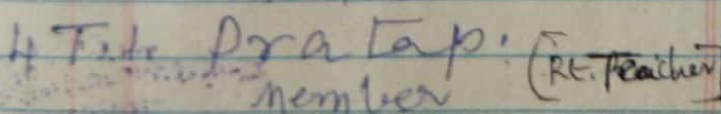 4 Pratap. (Rt. Teacher)
Member